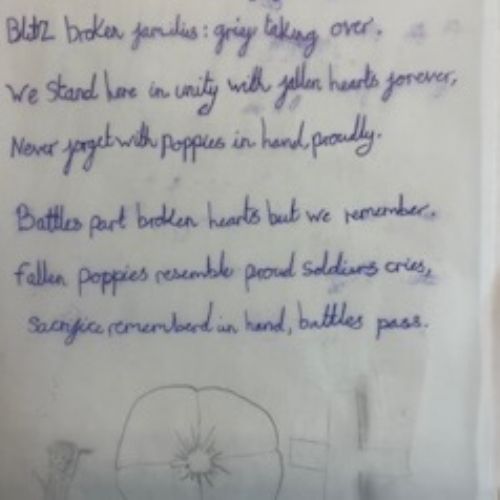 Blitz broken families: grey taking over.
We stand here in unity with fallen hearts forever,
Never forget with poppies in hand, proudly.
Battles part broken hearts but we remember.
Fallen poppies resemble proud soldiers cries,
Sacrifice rememberd in hand, battles pass.